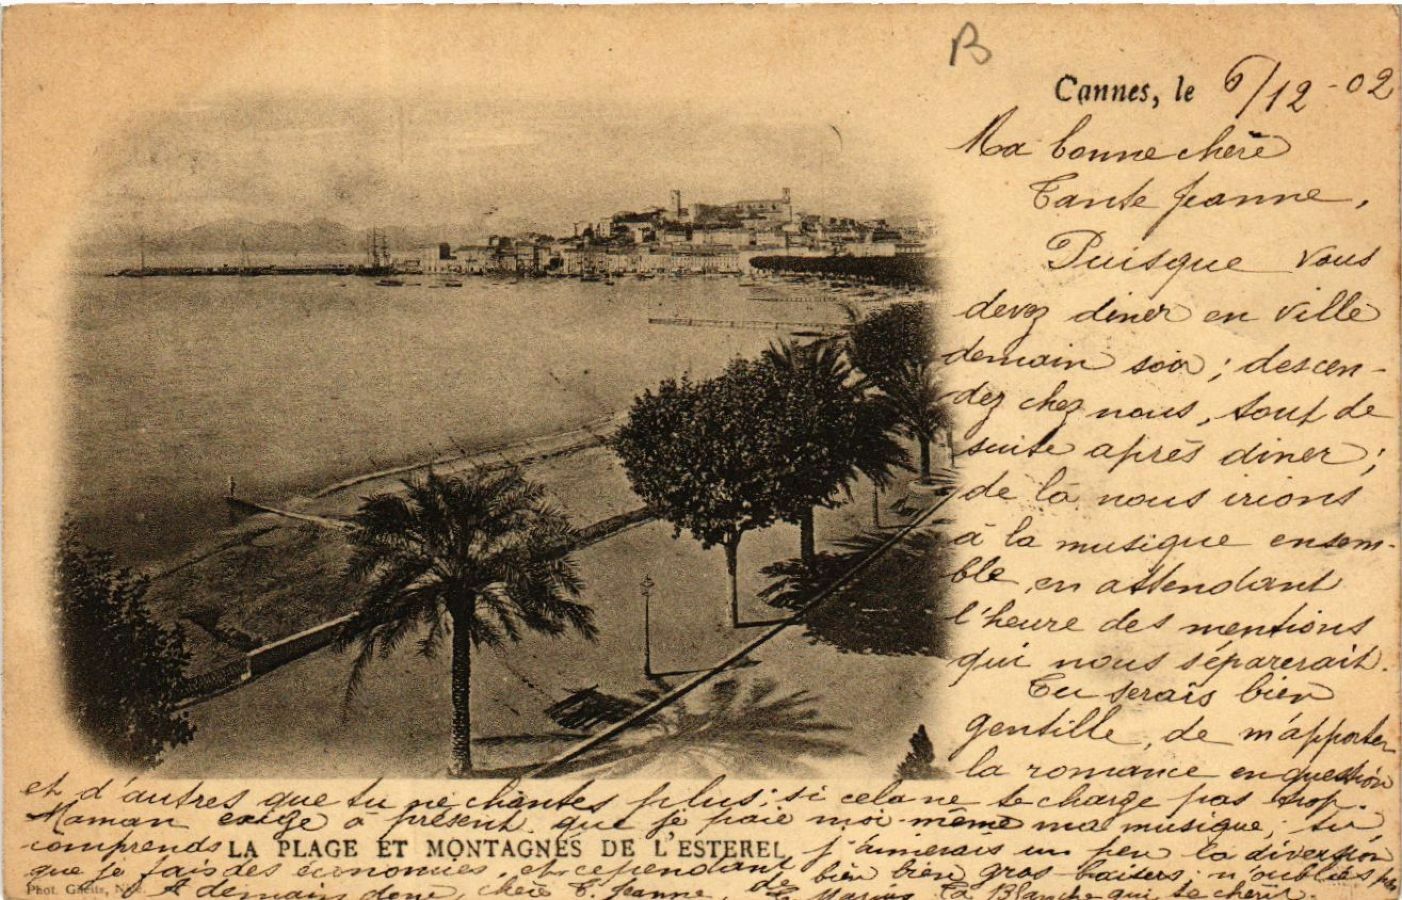 B
Cannes, le 6/12-02
Ma bonne chère
Tante Jeanne,
Puisque vous
devez diner en ville
demain soir ; descen-
dez chez nous, tout de
suite après diner ;
de là nous irions
à la musique ensem-
ble, en attendant
l'heure des mentions
qui nous séparerait.
Tu serais bien
gentille, de m'apporter
la romance en question
et d'autres que tu ne chantes plus ; si cela ne te charge pas trop.
Maman exige à présent que je paie moi-même ma musique ; tu
comprends
LA PLAGE ET MONTAGNES DE L'ESTEREL
j'aimerais un peu la diversion
que je fais des économies, et cependant
bien bien gros baisers ; n'oublies pas
Phot. Giletta, Nice.
A demain donc, chère T. Jeanne, de
Marius Ta Blanche qui te chérit.